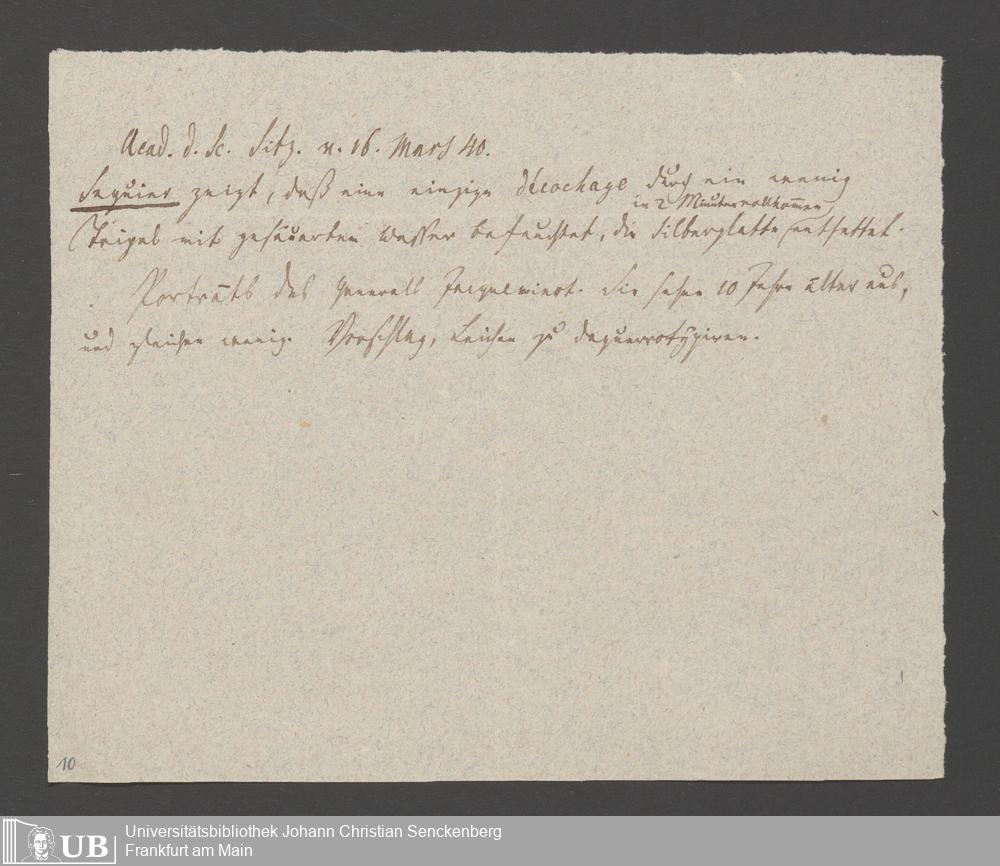 Acad. d. Sc. Sitz. v. 16. Mars 40.
Seguier zeigt, daß eine einzige décochage durch ein wenig
in 2 Minuten vollkommen
Tripel mit gesäuertem Wasser befeuchtet, die Silberplatte entfettet.
Porträts des Generals Jacqueminot. Sie sehen 10 Jahre älter aus,
und gleichen wenig. Vorschlag, Leichen zu daguerrotypiren.
10
UB
Universitätsbibliothek Johann Christian Senckenberg
Frankfurt am Main